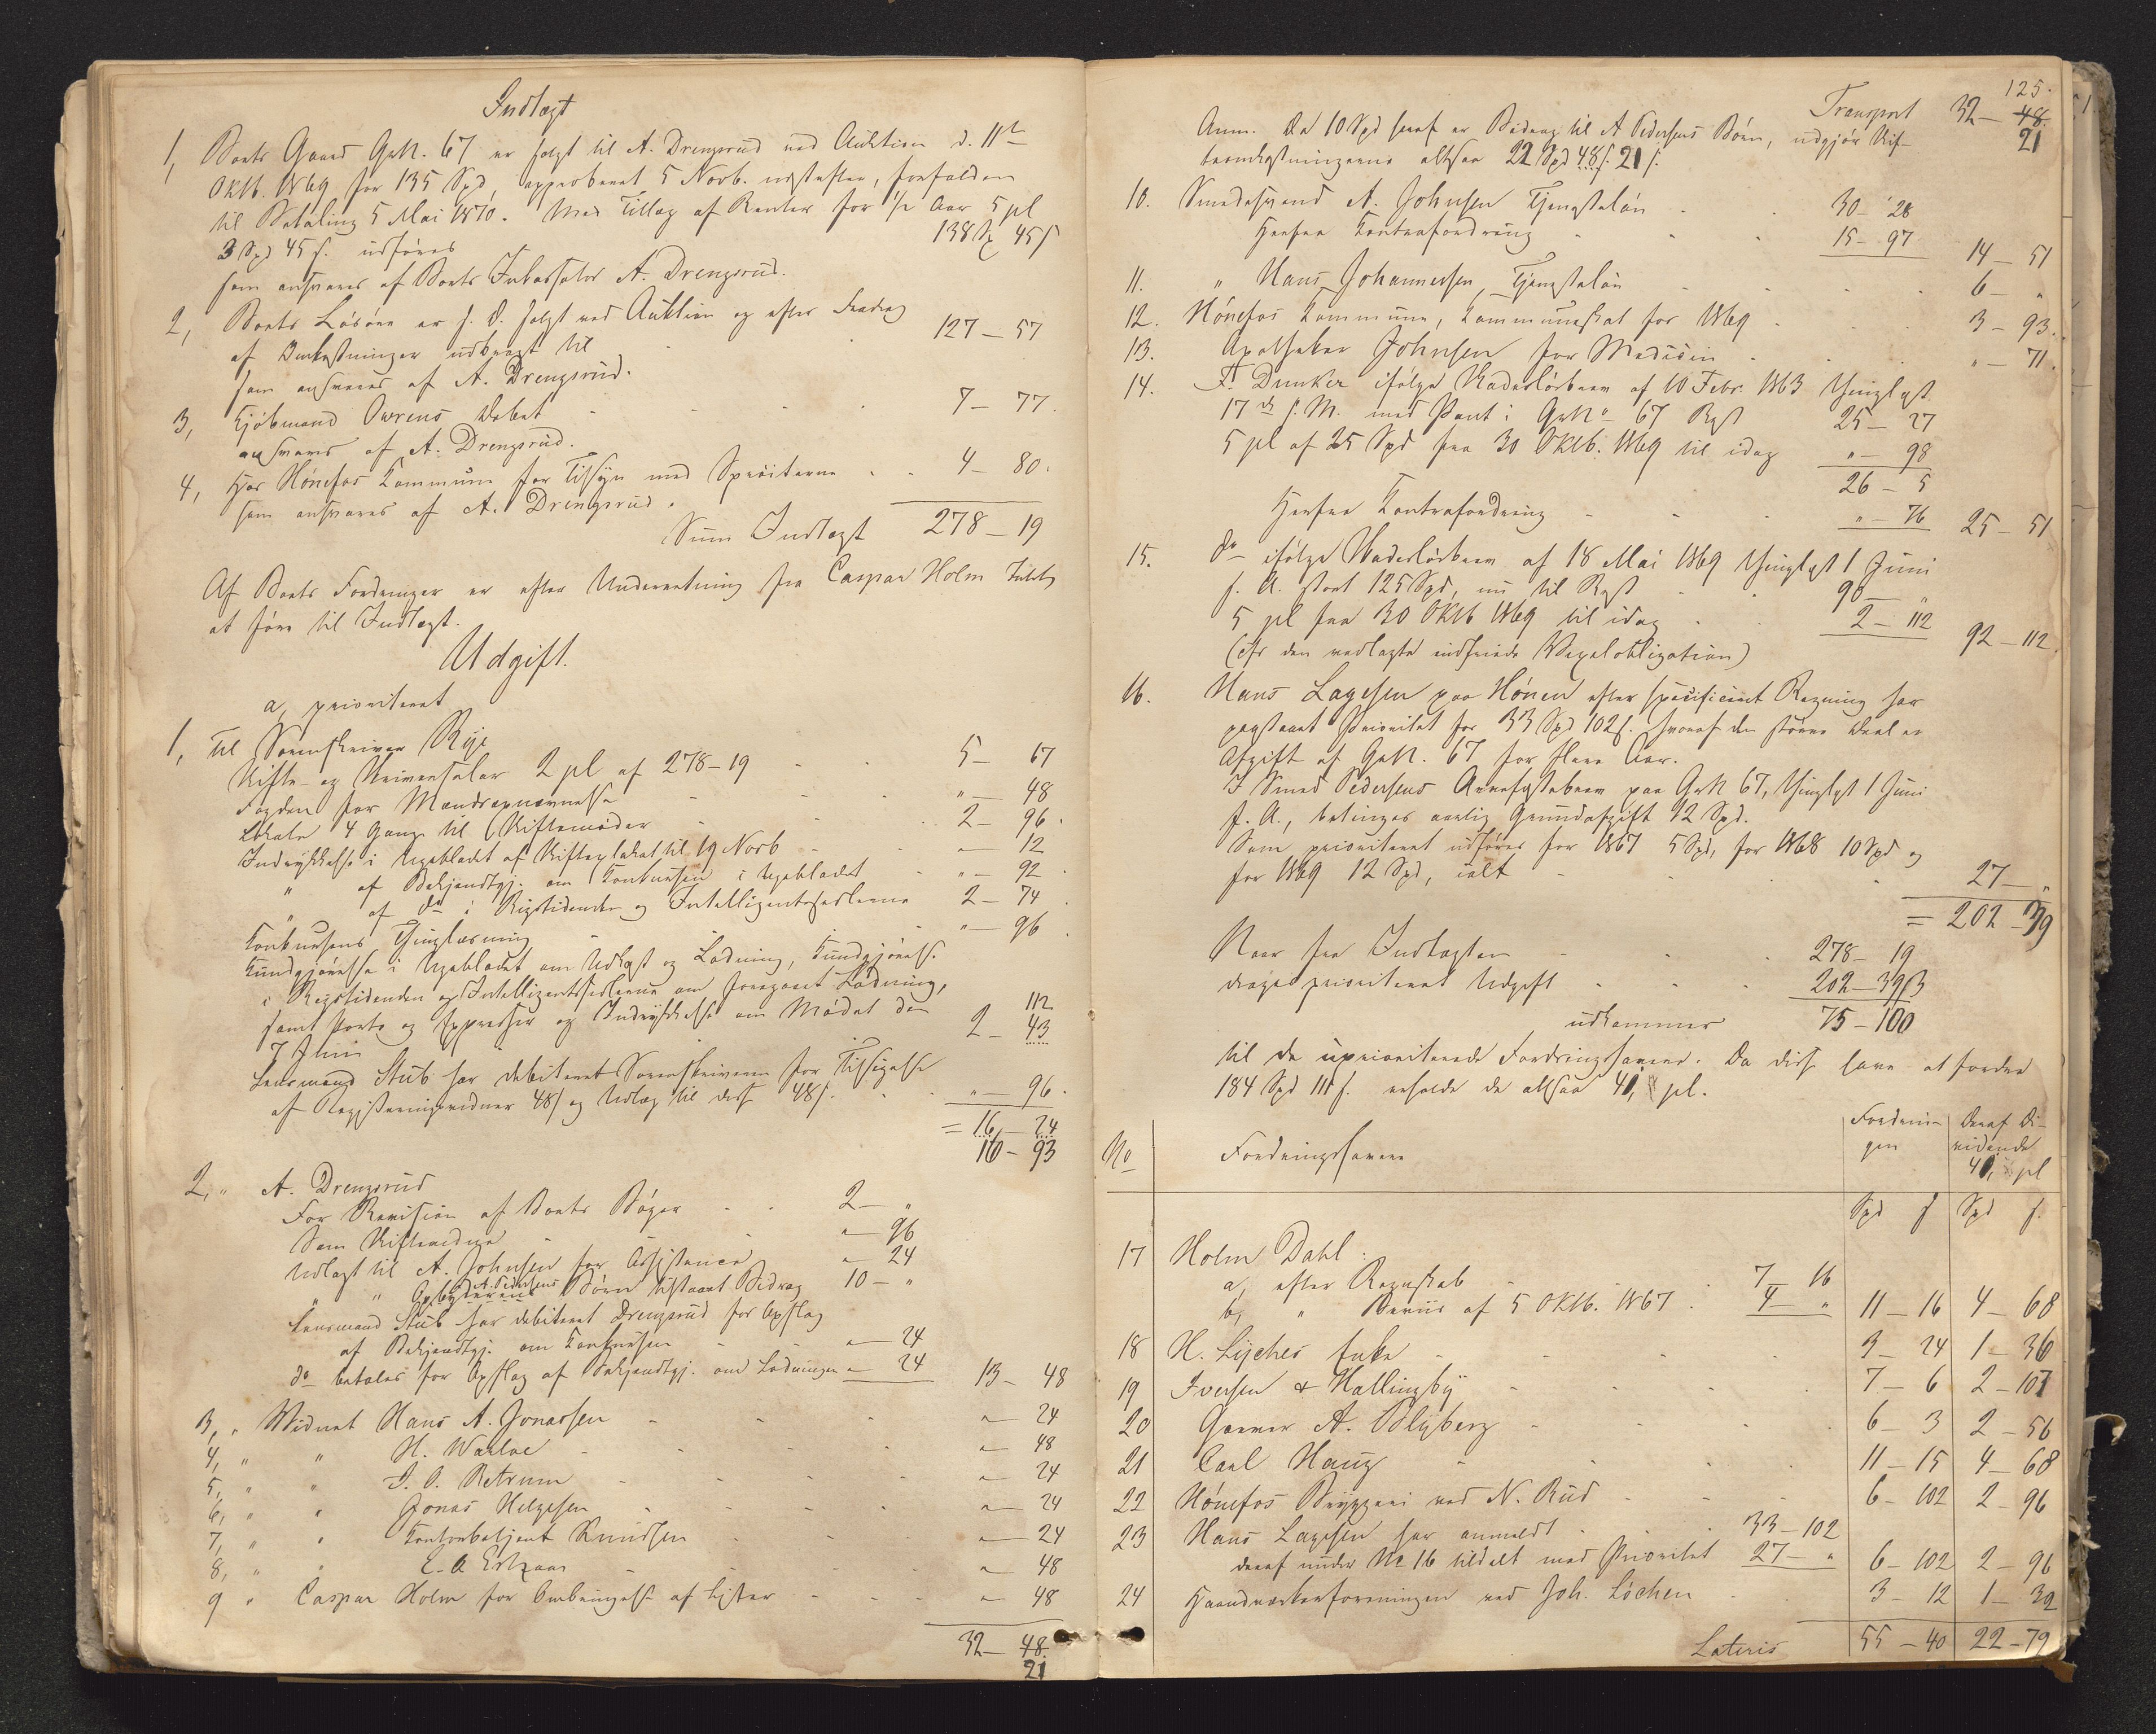 Indtægt
1, Boets Gaard GrN. 67 er solgt til A. Drengsrud ved Auktion d. 11te
Oktb. 1869 for 135 Spd, approberet 5 Novb. næstefter, forfalden
til Betaling 5 Mai 1870. Med Tillæg af Renter for 1/2 Aar 5 pC
3 Spd 45 s. udføres 138 Sp 45 s
som ansvares af Boets Inkassator A. Drengsrud.
2, Boets Løsøre er s. D. solgt ved Auktion og efter Fradrag
af Omkostninger udbragt til 127 – 57
som ansvares af A. Drengsrud.
3, Kjøbmand Owrens Debet 7 – 77.
ansvares af A. Drengsrud.
4, Hos Hönefos Kommune for Tilsyn med Sprøiterne 4 – 80.
som ansvares af A. Drengsrud.
Sum Indtægt 278 – 19
Af Boets Fordringer er efter Underretning fra Caspar Holm Intet
at føre til Indtægt.
Udgift.
a, prioriteret
1, Til Sorenskriver Rye
Skifte- og Skriversalær 2 pC af 278 – 19 5 – 67
Fogden for Mændsopnævnelse " – 48
Lokale 4 Gange til Skiftemøder 2 – 96.
Indrykkelse i Ugebladet af Skifteplakat til 19 Novb " – 12
" af Bekjendtgj. om Konkursen i Ugebladet " – 92
" af do i Rigstidenden og Intelligentssedlerne 2 – 74
Konkursens Thinglæsning " – 96.
Kundgjørelse i Ugebladet om Udlæg og Lodning, Kundgjørelse
i Rigstidenden og Intelligentssedlerne om foregaaet Lodning,
samt Porto og Expresser og Indrykkelse om Mødet den 112
7 Juni 2 – 43
Lensmand Stub har debiteret Sorenskriveren for Tilsigelse
af Registreringsvidner 48 s og Udlæg til disse 48 s. " – 96.
= 16 – 24
16 – 93
2, " A. Drengsrud
For Revision af Boets Bøger 2 – "
Som Skiftevidne " – 96
Udlagt til A. Johnsen for Assistance " – 24
A. Pedersens
" " Opbyderens Børn tilstaaet Bidrag 10 – "
Lensmand Stub har debiteret Drengsrud for Opslag
af Bekjendtgj. om Konkursen " – 24
do betales for Opslag af Bekjendtgj. om Lodningen " – 24 13 – 48
3, " Vidnet Hans A. Jonassen " – 24
4, " " H. Warloe " – 48
5, " " J. O. Retrum " – 24
6, " " Jonas Helgesen " – 24
7, " " Kontorbetjent Knudsen " – 24
8, " " " – 48
9 " Caspar Holm for Ombringelse af Lister " – 48
32 – 48.
21
125.
Transport 32 – 48.
21
Anm. Da 10 Spd heraf er Bidrag til A Pedersens Børn, udgjør Skif-
teomkostningerne altsaa 22 Spd 48 s. 21 s.
10. Smedesvend A. Johnsen Tjenesteløn 30 – 28
Herfra Kontrafordring 15 – 97 14 – 51
11. " Hans Johannesen Tjenesteløn 6 – "
12. Hönefos Kommune, Kommuneskat for 1869 3 – 93.
13. Apotheker Johnsen for Medicin " – 71.
14. F. Dunker ifølge Skadesløsbrev af 10 Febr. 1863 thinglyst
17de s. M. med Pant i GrNo 67 Rest 25 – 27
5 pC af 25 Spd fra 30 Oktb. 1869 til idag " – 98
26 – 5
Herfra Kontrafordring " – 76 25 – 51
15. do ifølge Skadesløsbrev af 18 Mai 1869 thinglyst 1 Juni
s. A. stort 125 Spd, nu til Rest 90 – "
5 pC fra 30 Oktb 1869 til idag 2 – 112 92 – 112.
(Ifr den vedlagte indfriede Vexelobligation)
16. Hans Lagesen paa Hönen efter specificeret Regning har
paastaaet Prioritet for 33 Spd 102 s. hvoraf den større Deel er
Afgift af GrN. 67 for flere Aar.
I Smed Pedersens Arvefæstebrev paa GrN 67, thinglyst 1 Juni
s. A., betinges aarlig Grundafgift 12 Spd.
Som prioriteret udføres for 1867 5 Spd, for 1868 10 Spd og
for 1869 12 Spd, ialt 27 – "
= 202 – 39
Naar fra Indtægten 278 – 19
drages prioriteret Udgift 202 – 39 s
udkommer 75 – 100
til de uprioriterede Fordringshavere. Da disse have at fordre
184 Spd 111 s. erholde de altsaa 41, pC.
No Fordringshavere Fordrin- gen Deraf Di- vidende 41, pC
Spd s Spd s.
17 Holm Dahl:
a, efter Regnskab 7 – 16
b, " Beviis af 5 Oktb. 1867 4 – " 11 – 16 4 – 68
18 H. Lyches Enke 3 – 24 1 – 36
19 Iversen & Hallingby 7 – 6 2 – 107
20 Garver A. Blyberg 6 – 3 2 – 56
21 Carl Haug 11 – 15 4 – 68
22 Hönefos Bryggeri ved N. Rud 6 – 102 2 – 96
23 Hans Lagesen har anmeldt 33 – 102
deraf under No 16 tildelt med Prioritet 27 – " 6 – 102 2 – 96
24 Haandværkerforeningen ved Joh. Löchen 3 – 12 1 – 32
Lateris 55 – 40 22 – 79